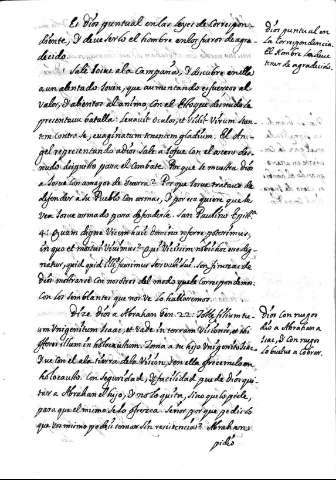 Es Dios puntual en las leyes de Correspon-
diente, y deve serlo el hombre en los fueros de agra-
decido.
Sale Josue a la Campaña, y descubre en ella
a un alentado Joven, que aumentando esfuerzos al
valor, y alientos al animo, con el estoque desnudo le
presenta batalla: levavit oculos, et vidit virum stan-
tem contra se, evaginatum tenentem gladium. El An-
gel representando a Dios sale a Josue con el acero des-
nudo
para el Combate. Porque se muestra Dios
a Josue con amagos de Guerra? Porque Josue trata de
defender a su Pueblo con armas, y porque quiere que le
vea Josue armado para defenderle. San Paulino Epist.
4: quam digne vicem
referre possimus,
in quo et
Son finezas de
Dios mostrarse con nosotros del modo que le correspondemos.
Con los semblantes que nos ve lo hallaremos.
Dize Dios a Abrahan Gen. 22. Tolle filium tu-
um Unigenitum Isaac, et vade in terram Visionis, et ibi
offeres illum in holocaustum. Toma a tu hijo Unigenito Isaac,
y ve con el a la tierra de la Vision, y en ella ofrecemelo en
holocausto. Con seguridad, y facilidad puede Dios qui-
tar a Abrahan el hijo, y no lo quita, sino que lo pide,
para que el mismo se lo ofrezca. Señor porque pedis lo
que vos mismo podeis tomar sin resistencias? Abrahan
pidio
Dios puntual en
la Correspondencia.
El hombre lo deve
ser de agradecido.
Dios con ruegos
pidio a Abrahan a
Isac, y con ruego
lo buelve a Cobrar.